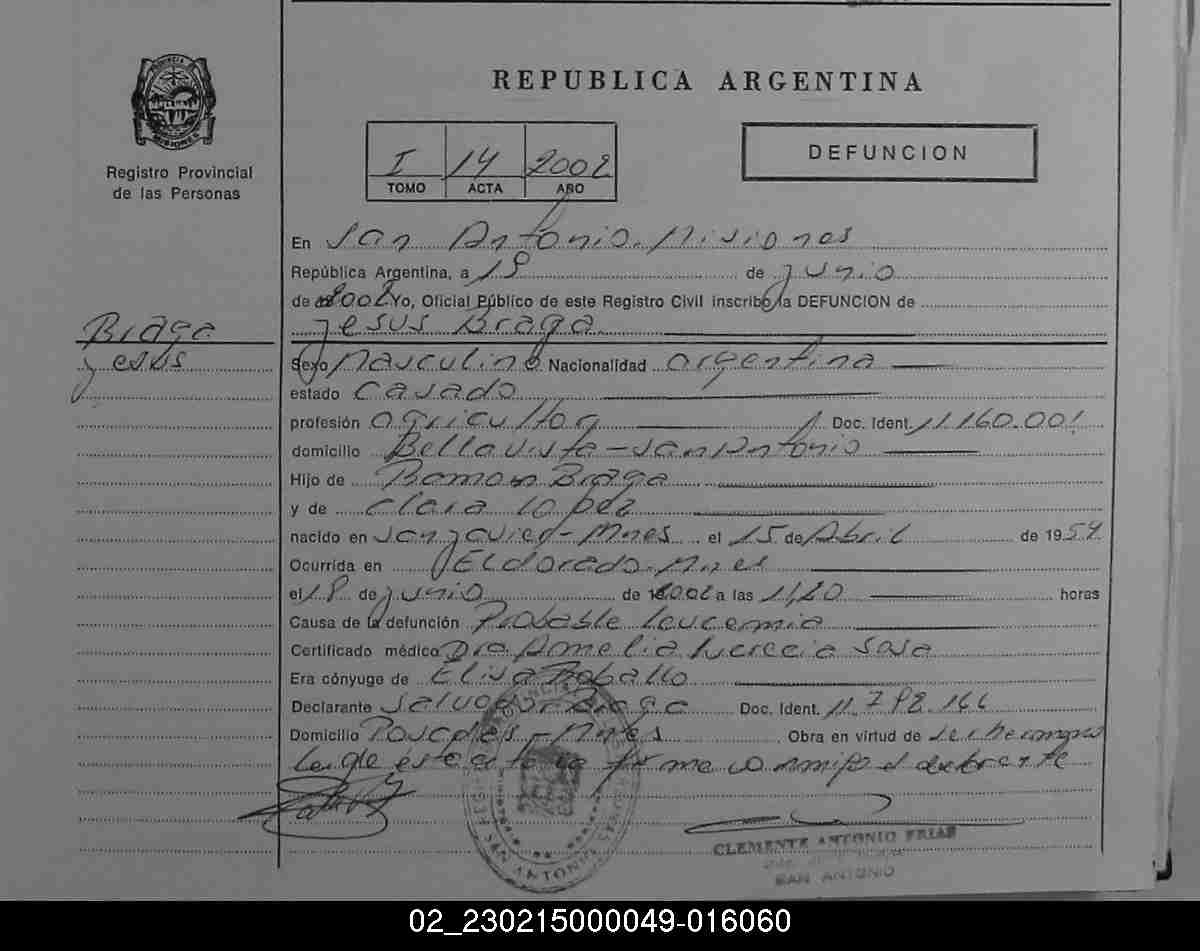 PROVINCIA
DE
MISIONES
Registro Provincial
de las Personas
REPUBLICA ARGENTINA
I 14 2002
TOMO ACTA AÑO
DEFUNCION
En San Antonio. Misiones
República Argentina, a 19 de junio
de 2002 Yo, Oficial Público de este Registro Civil inscribo la DEFUNCION de
Jesus Braga
Braga
Jesus
Sexo Masculino Nacionalidad argentina
estado Casado
profesión agricultor Doc. Ident. 11.160.001
domicilio Bellavista - San Antonio
Hijo de Ramon Braga
y de Clara Lopez
nacido en San Javier - Mnes el 15 de Abril de 1954
Ocurrida en Eldorado. Mnes
el 18 de junio de 2002 a las 11,20 horas
Causa de la defunción Probable leucemia
Certificado médico Dra Amelia Sosa
Era cónyuge de Elisa Roballo
Declarante Salvador Braga Doc. Ident. 11.792.166
Domicilio Posadas - Mnes Obra en virtud de ser hermano
Leida este acta la firma conmigo el declarante
CLEMENTE ANTONIO FRIAS
SAN ANTONIO
02_230215000049-016060